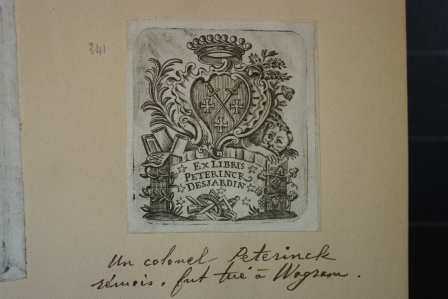 241
EX LIBRIS
PETERINCK
DESJARDIN
Un colonel Peterinck
rémois. fut tué à Wagram.